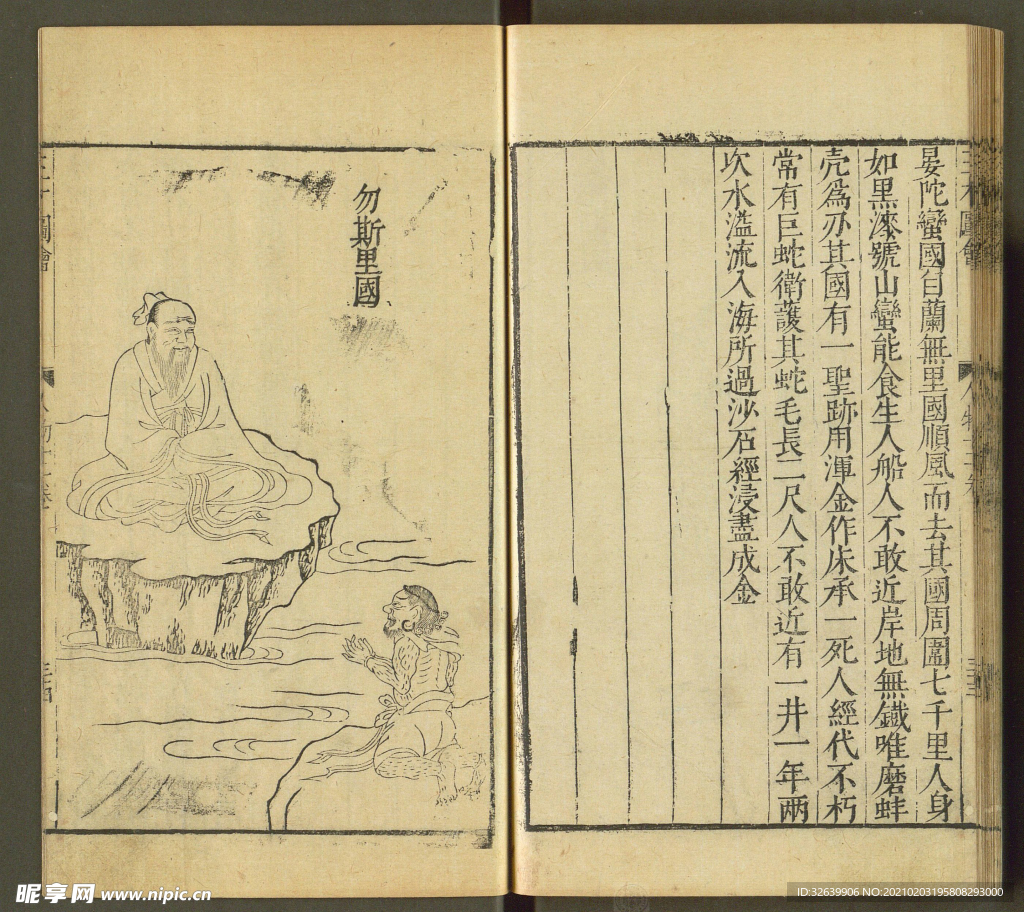 三才圖會
人物十二卷
三三
晏陀蠻國自蘭無里國順風而去其國周圍七千里人身
如黑漆號山蠻能食生人船人不敢近岸地無鐵唯磨蚌
壳爲刃其國有一聖跡用渾金作床承一死人經代不朽
常有巨蛇衛護其蛇毛長二尺人不敢近有一井一年兩
次水溢流入海所過沙石經浸盡成金
勿斯里國
圖會
三四
昵享网 www.nipic.cn
ID:32639906 NO:20210203195808293000